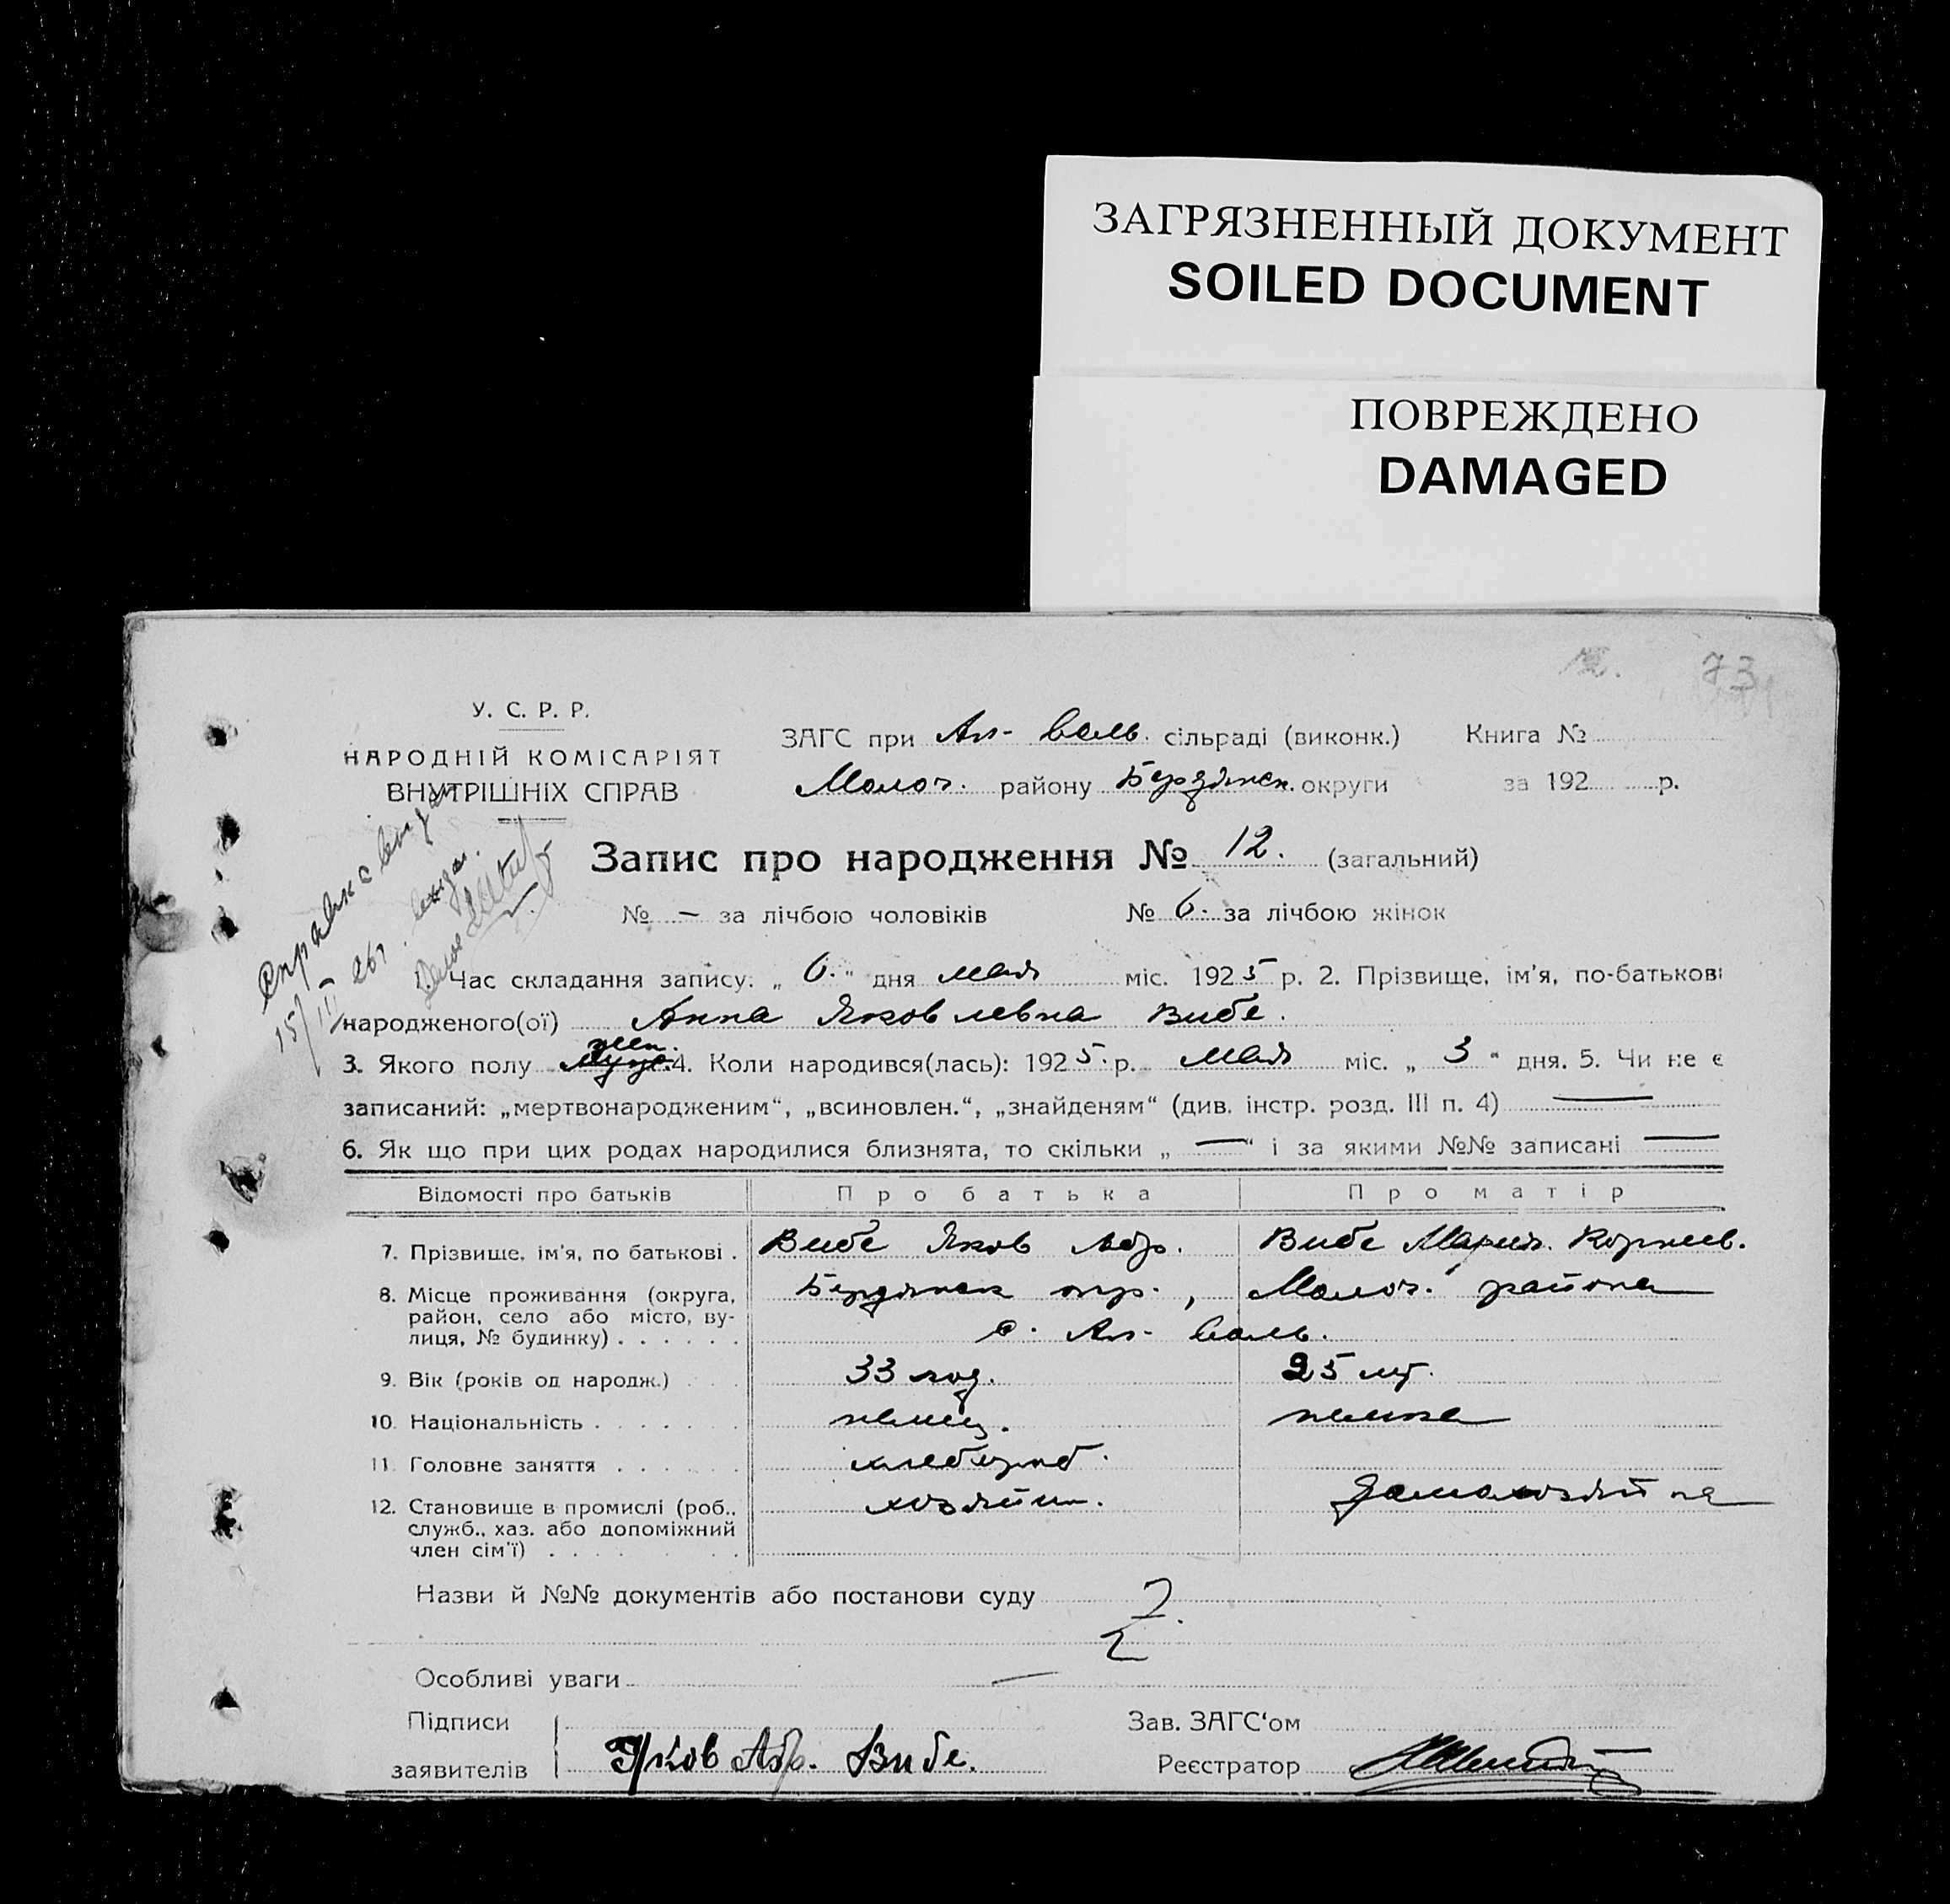 ЗАГРЯЗНЕННЫЙ ДОКУМЕНТ
SOILED DOCUMENT
ПОВРЕЖДЕНО
DAMAGED
73
У. С. Р. Р.
НАРОДНІЙ КОМІСАРІЯТ
ВНУТРІШНІХ СПРАВ
ЗАГС при Ал- Валь. сільраді (виконк.) Книга №
Молоч. району Бердянск. округи за 192 р.
Запис про народження № 12. (загальний)
№ — за лічбою чоловіків № 6. за лічбою жінок
15/III 26г.
1. Час складання запису: „ 6. " дня мая міс. 1925 р. 2. Прізвище, ім'я, по-батькові
народженого(ої) Анна Яковлевна Вибе.
жен.
3. Якого полу муж. 4. Коли народився(лась): 1925. р. Мая міс. „ 3 " дня. 5. Чи не є
записаний: „мертвонародженим", „всиновлен.", „знайденям" (див. інстр. розд. III п. 4) —
6. Як що при цих родах народилися близнята, то скільки „ — " і за якими №№ записані —
Відомості про батьків Про батька Про матір
7. Прізвище, ім'я, по батькові . Вибе Яков Абр. Вибе Мария. Корнеев.
8. Місце проживання (округа, Бердянск окр. , Молоч. района
район, село або місто, ву-
лиця, № будинку) . . . . . . с. Ал- Валь.
9. Вік (років од народж.) 33 год. 25 лет.
10. Національність . . . . . . . немец. немка
11. Головне заняття . . . . . . хлебороб.
12. Становище в промислі (роб., хозяин. домохозяйка
служб., хаз. або допоміжний
член сім'ї) . . . . . . .
Назви й №№ документів або постанови суду
Особливі уваги —
Підписи Зав. ЗАГС'ом
заявителів Яков Абр. Вибе. Реєстратор